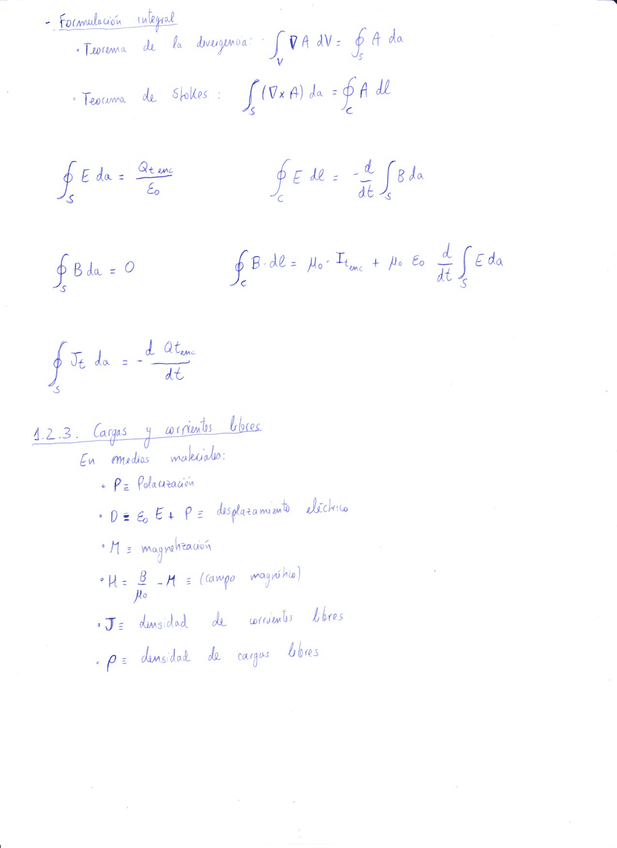 - Formulación integral
· Teorema de la divergencia: ∫_V ∇A dV = ∮_S A da
· Teorema de Stokes: ∫_S (∇×A) da = ∮_C A dl
∮_S E da = Qt enc / ε₀
∮_C E dl = - d/dt ∫_S B da
∮_S B da = 0
∮_C B · dl = μ₀ · I_t enc + μ₀ ε₀ d/dt ∫_S E da
∮_S Jt da = - d Qt enc / dt
1.2.3. Cargas y corrientes libres
En medios materiales:
· P ≡ Polarización
· D ≡ ε₀ E + P ≡ desplazamiento eléctrico
· M ≡ magnetización
· H = B/μ₀ - M ≡ (campo magnético)
· J ≡ densidad de corrientes libres
· ρ ≡ densidad de cargas libres